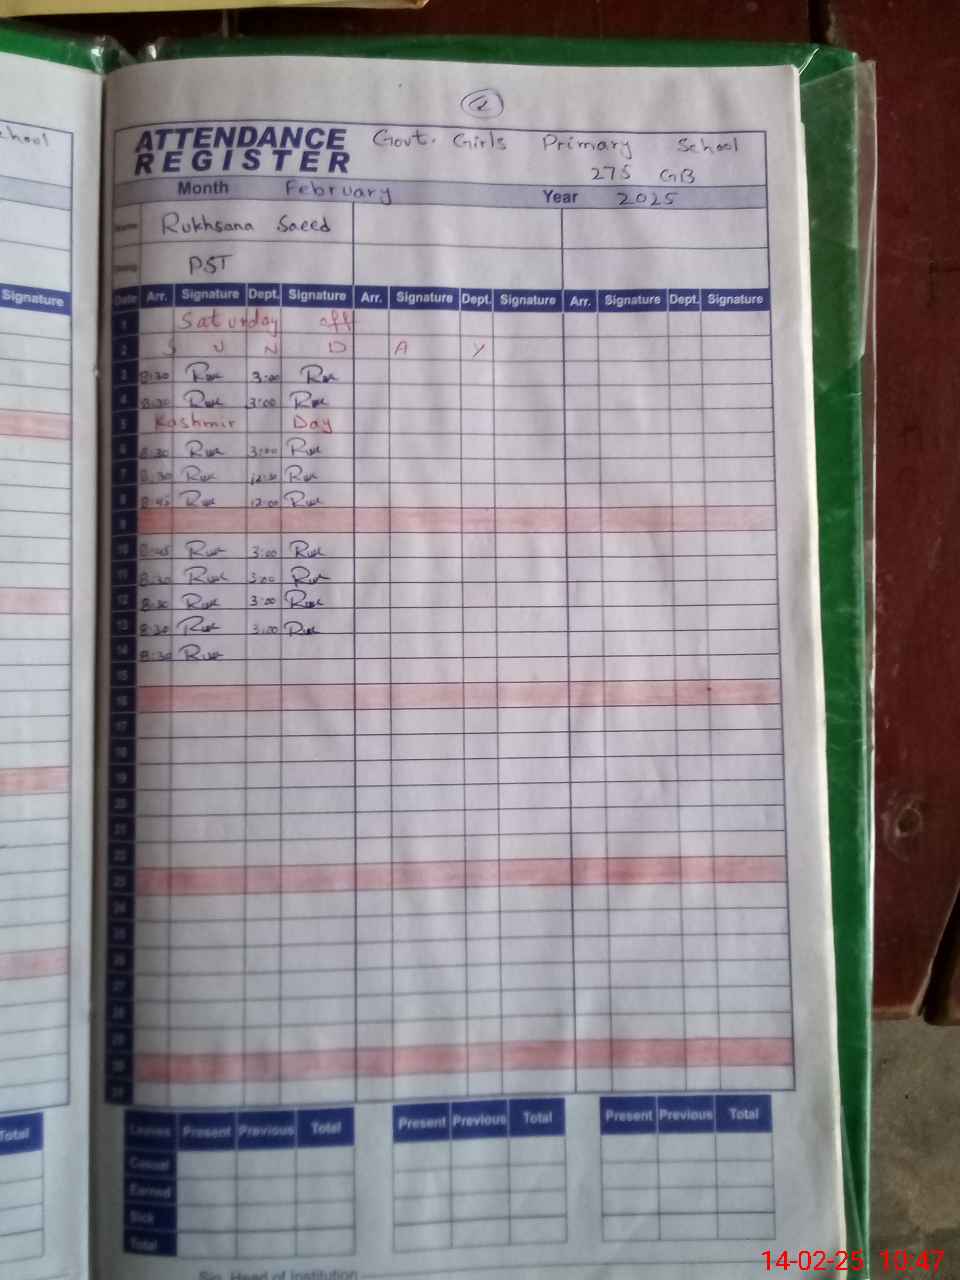 chool
2
ATTENDANCE Govt. Girls Primary School
REGISTER 275 GB
Month February Year 2025
Name Rukhsana Saeed
PST
Signature
Date Arr. Signature Dept. Signature Arr. Signature Dept. Signature Arr. Signature Dept. Signature
1 Saturday off
2 S U N D A Y
3 8:30 Ruk 3:00 Ruk
4 8:30 Ruk 3:00 Ruk
5 Kashmir Day
6 8:30 Ruk 3:00 Ruk
7 8:30 Ruk 12:30 Ruk
8 8:45 Ruk 12:00 Ruk
9
10 8:45 Ruk 3:00 Ruk
11 8:30 Ruk 3:00 Ruk
12 8:30 Ruk 3:00 Ruk
13 8:30 Ruk 3:00 Ruk
14 8:30 Ruk
15
16
17
18
19
20
21
22
23
24
25
26
27
28
29
30
31
Total
Leaves Present Previous Total Present Previous Total Present Previous Total
Casual
Earned
Sick
Total
Sig. Head of Institution
14-02-25 10:47